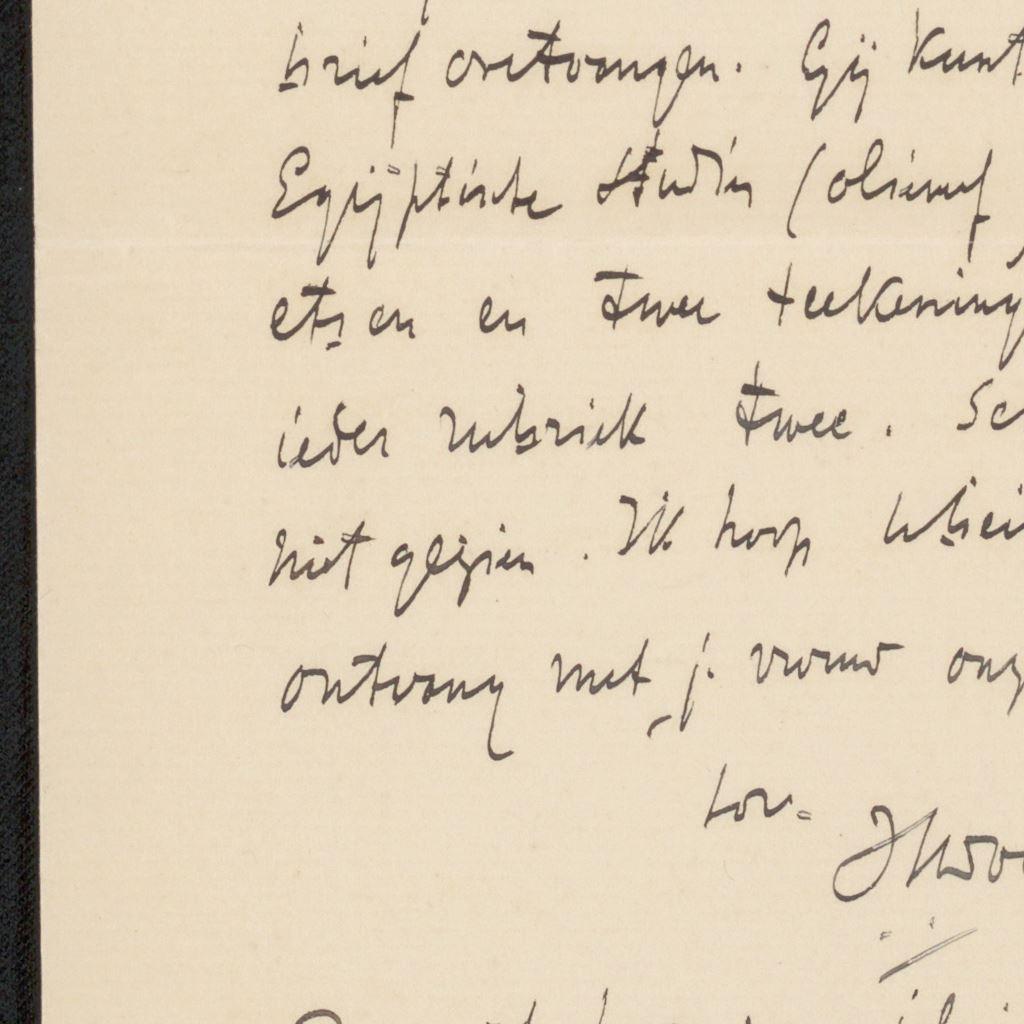 brief ontvangen. Gij kunt
Egijptische studiën (olieverf
etsen en twee teekening
ieder rubriek twee. Sc
niet gezien. Ik hoop
ontvang met j. vrouw onz
t.av.